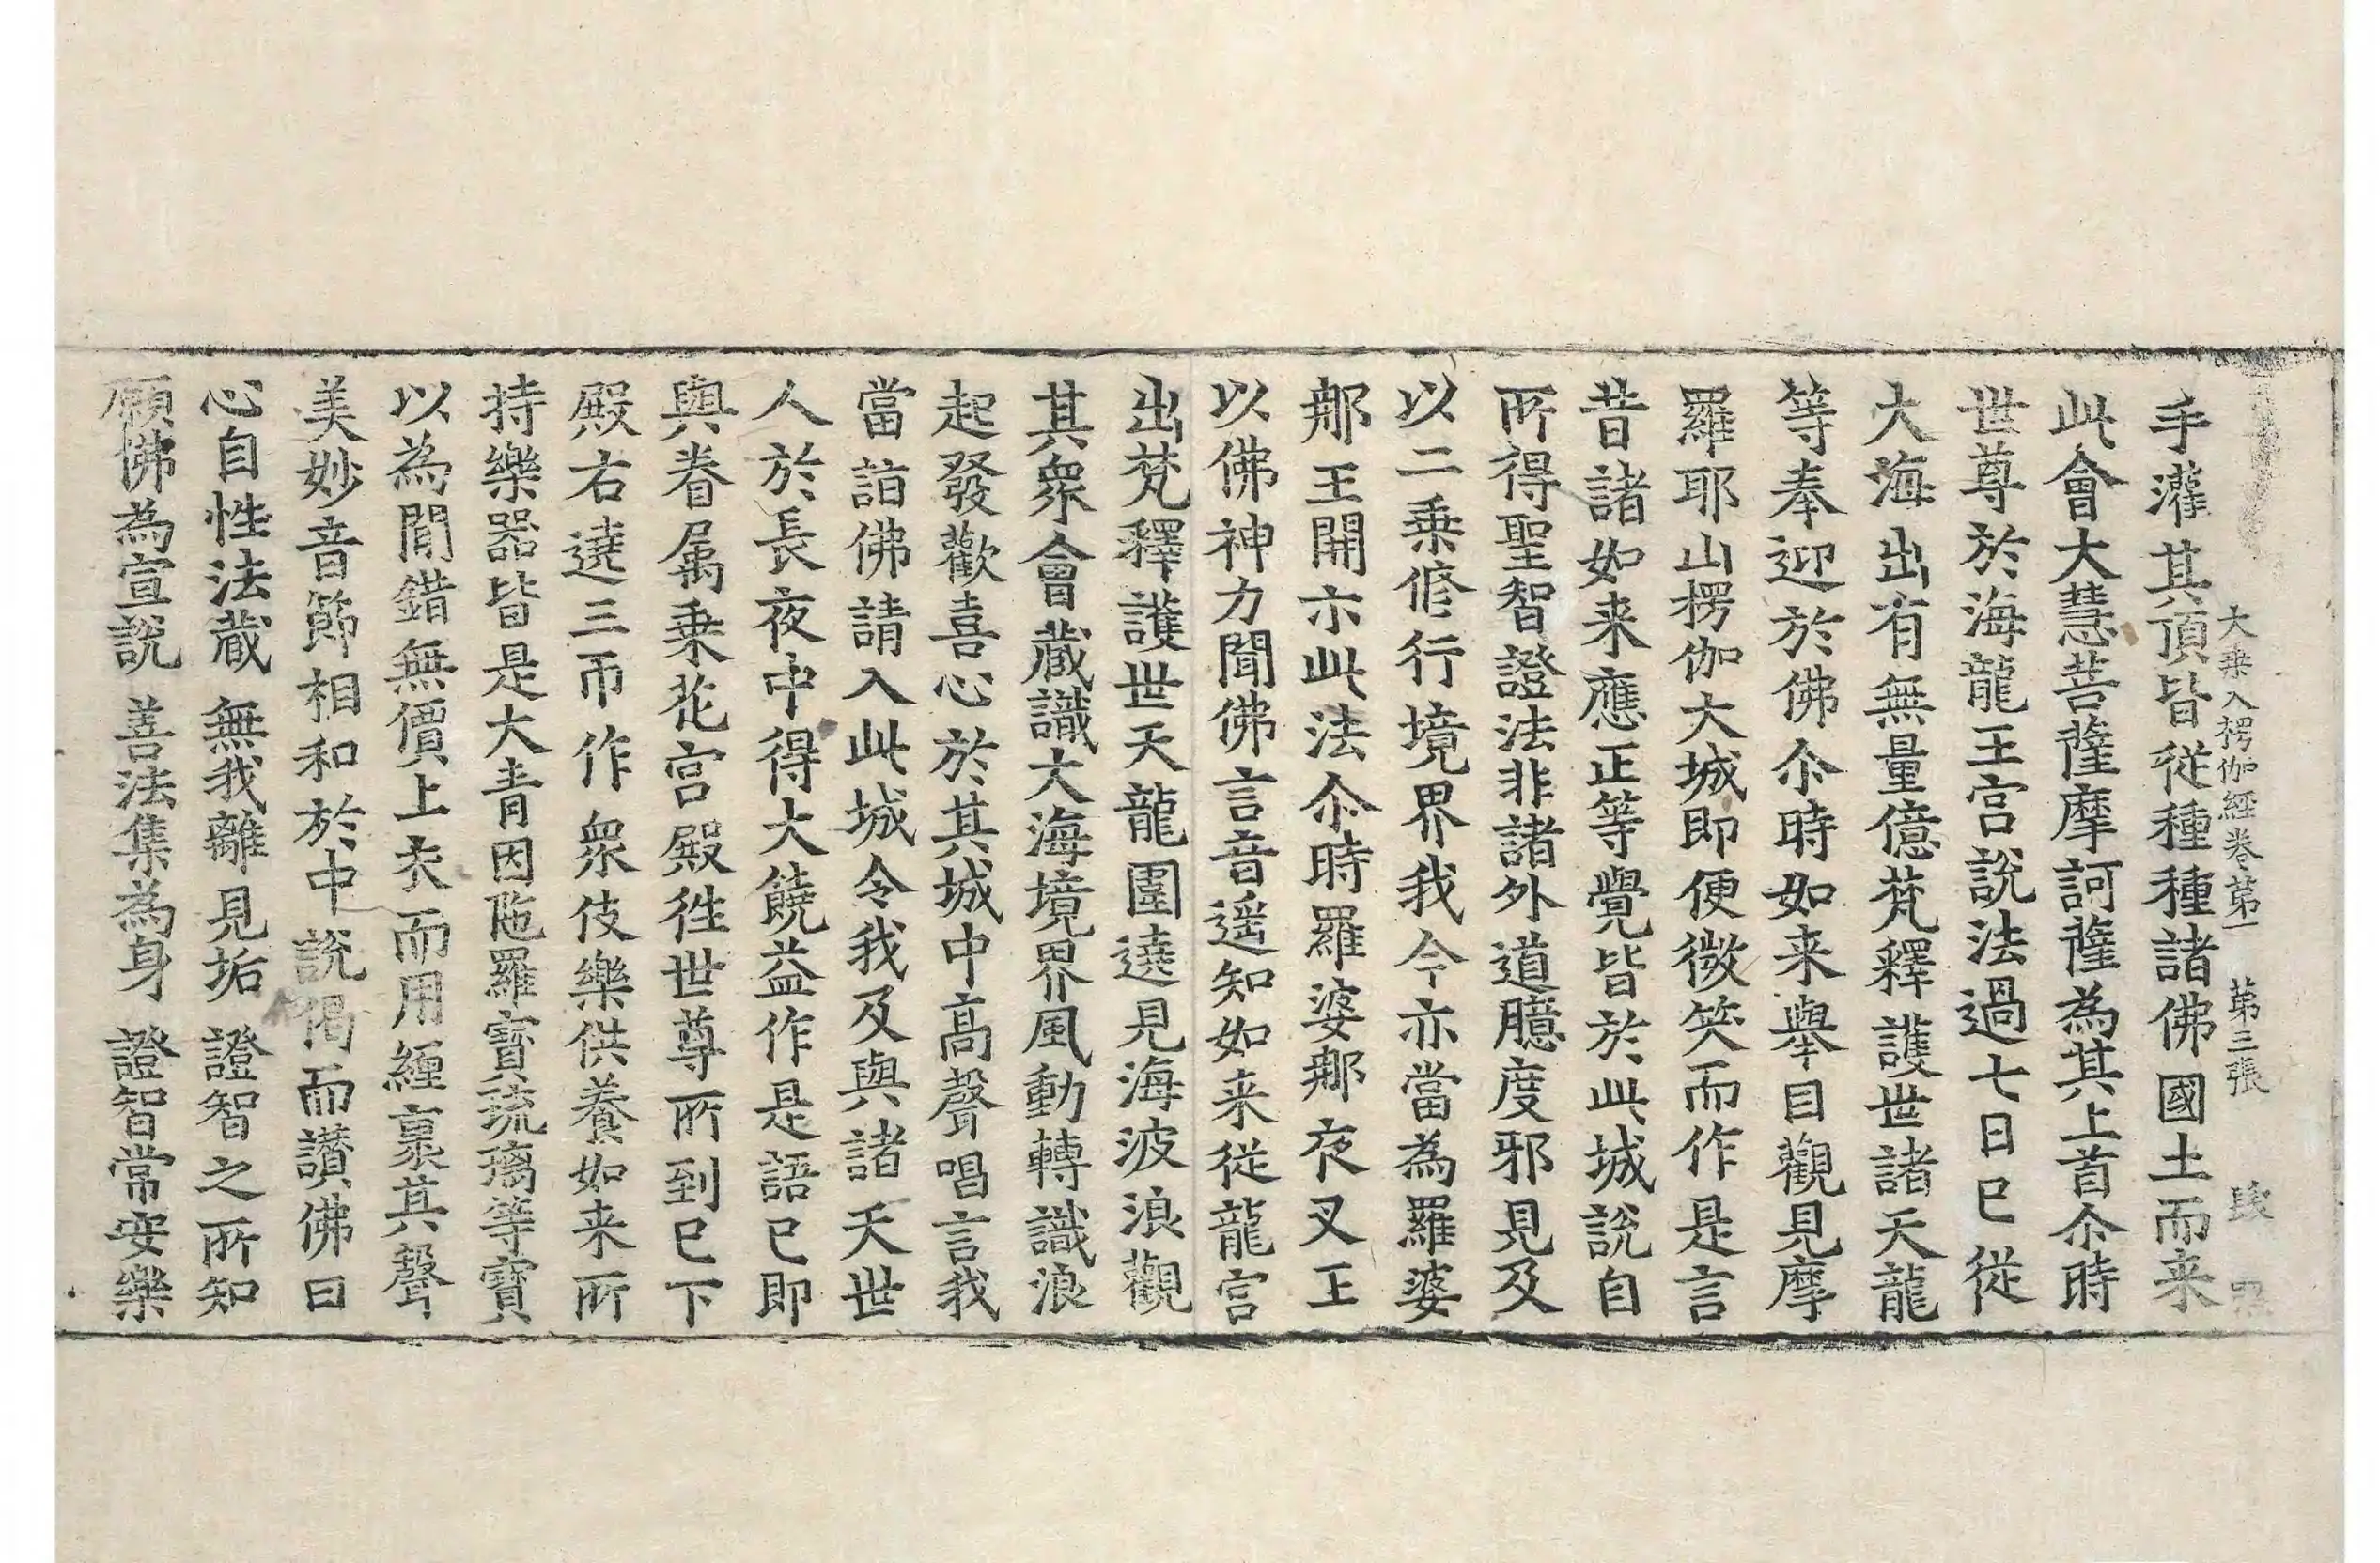 大乗入楞伽經卷第一 第三張
手灌其頂皆從種種諸佛國土而来
此會大慧菩薩摩訶薩為其上首尒時
世尊於海龍王宫說法過七日已從
大海出有無量億梵釋護世諸天龍
等奉迎於佛尒時如来舉目觀見摩
羅耶山楞伽大城即便微笑而作是言
昔諸如来應正等覺皆於此城說自
所得聖智證法非諸外道臆度邪見及
以二乗修行境界我今亦當為羅婆
那王開示此法尒時羅婆那夜叉王
以佛神力聞佛言音遥知如来從龍宫
出梵釋護世天龍圍遶見海波浪觀
其衆會蔵識大海境界風動轉識浪
起發歡喜心於其城中髙聲唱言我
當詣佛請入此城令我及與諸天世
人於長夜中得大饒益作是語已即
與眷属乗花宫殿往世尊所到已下
殿右遶三帀作衆伎樂供養如来所
持樂器皆是大青因陁羅寳琉璃等寳
以為間錯無價上衣而用纏裹其聲
美妙音節相和於中說偈而讃佛曰
心自性法蔵 無我離見垢 證智之所知
願佛為宣說 善法集為身 證智常安樂